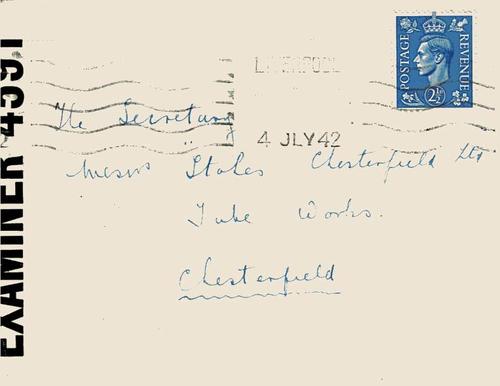 EXAMINER 4591
POSTAGE REVENUE
2½
LIVERPOOL
4 JLY 42
The Secretary
Messrs Stokes Chesterfield Ltd
Tube Works.
Chesterfield